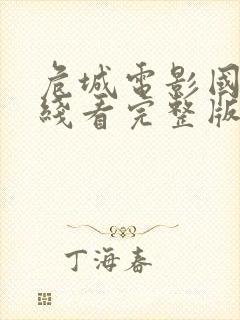 危城電影國
綫看完整版
丁海春